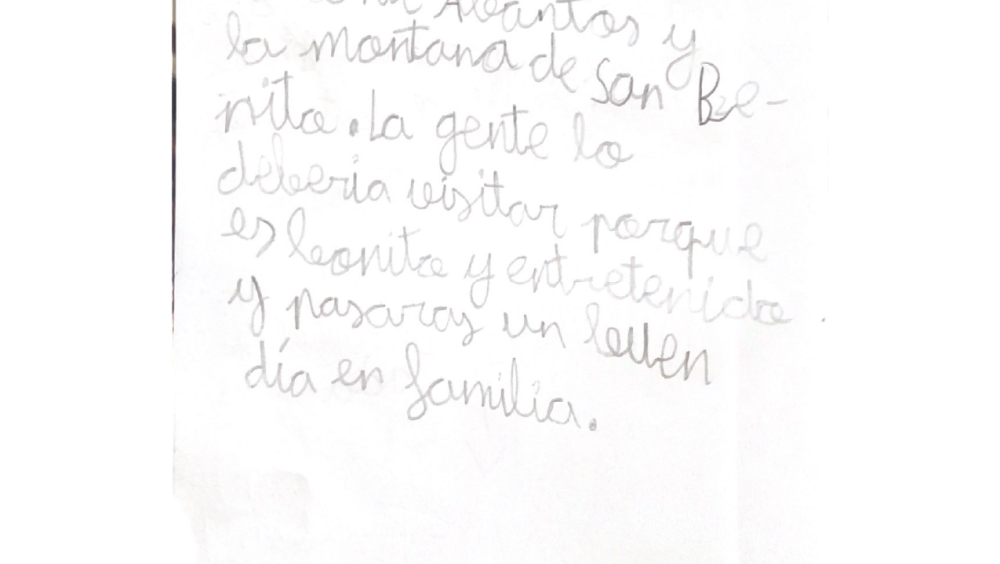 Abantos y
la montana de San Be-
nito. La gente lo
deberia visitar porque
es bonito y entretenido
y pasaras un buen
día en familia.